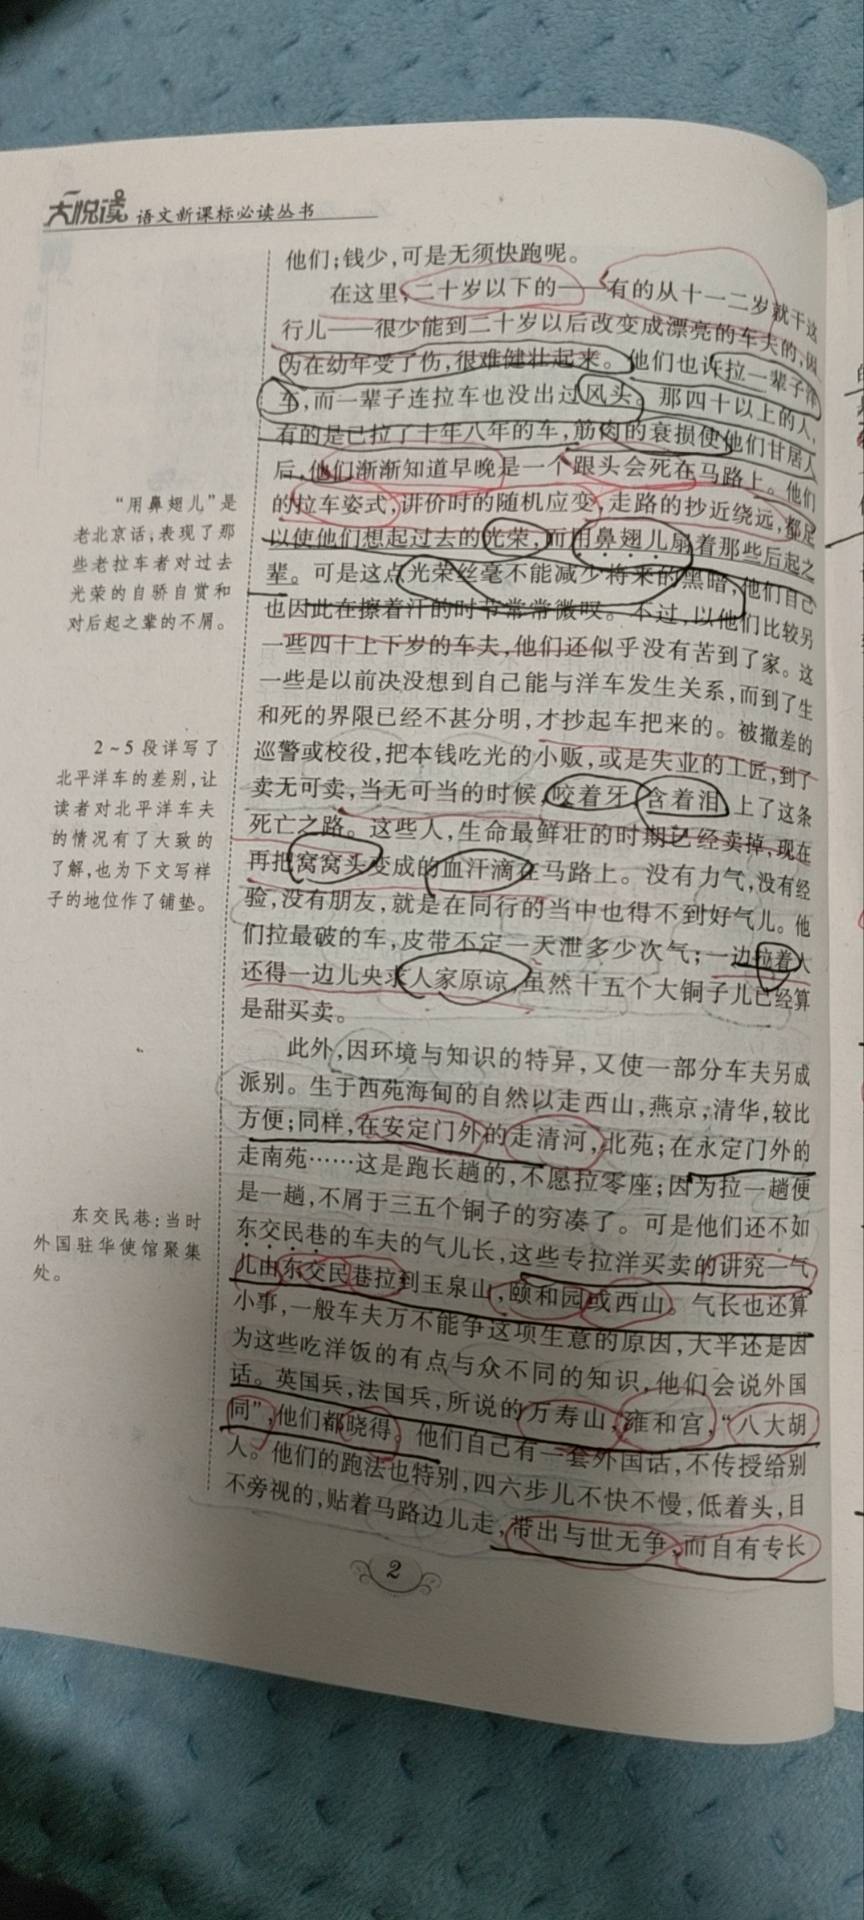 天悦读 语文新课标必读丛书
他们;钱少,可是无须快跑呢。
在这里,二十岁以下的——有的从十一二岁就干这
行儿——很少能到二十岁以后改变成漂亮的车夫的,因
为在幼年受了伤,很难健壮起来。他们也许拉一辈子洋
车,而一辈子连拉车也没出过风头。那四十以上的人,
有的是已拉了十年八年的车,筋肉的衰损使他们甘居人
后,他们渐渐知道早晚是一个跟头会死在马路上。他们
的拉车姿式,讲价时的随机应变,走路的抄近绕远,都足
以使他们想起过去的光荣,而用鼻翅儿扇着那些后起之
辈。可是这点光荣丝毫不能减少将来的黑暗,他们自己
也因此在擦着汗的时节常常微叹。不过,以他们比较另
一些四十上下岁的车夫,他们还似乎没有苦到了家。这
一些是以前决没想到自己能与洋车发生关系,而到了生
和死的界限已经不甚分明,才抄起车把来的。被撤差的
巡警或校役,把本钱吃光的小贩,或是失业的工匠,到了
卖无可卖,当无可当的时候,咬着牙,含着泪,上了这条
死亡之路。这些人,生命最鲜壮的时期已经卖掉,现在
再把窝窝头变成的血汗滴在马路上。没有力气,没有经
验,没有朋友,就是在同行的当中也得不到好气儿。他
们拉最破的车,皮带不定一天泄多少次气;一边拉着人
还得一边儿央求人家原谅,虽然十五个大铜子儿已经算
是甜买卖。
此外,因环境与知识的特异,又使一部分车夫另成
派别。生于西苑海甸的自然以走西山,燕京,清华,较比
方便;同样,在安定门外的走清河,北苑;在永定门外的
走南苑……这是跑长趟的,不愿拉零座;因为拉一趟便
是一趟,不屑于三五个铜子的穷凑了。可是他们还不如
东交民巷的车夫的气儿长,这些专拉洋买卖的讲究一气
儿由东交民巷拉到玉泉山,颐和园或西山。气长也还算
小事,一般车夫万不能争这项生意的原因,大半还是因
为这些吃洋饭的有点与众不同的知识,他们会说外国
话。英国兵,法国兵,所说的万寿山,雍和宫,“八大胡
同”,他们都晓得。他们自己有一套外国话,不传授给别
人。他们的跑法也特别,四六步儿不快不慢,低着头,目
不旁视的,贴着马路边儿走,带出与世无争,而自有专长
“用鼻翅儿”是
老北京话,表现了那
些老拉车者对过去
光荣的自骄自赏和
对后起之辈的不屑。
2~5段详写了
北平洋车的差别,让
读者对北平洋车夫
的情况有了大致的
了解,也为下文写祥
子的地位作了铺垫。
东交民巷:当时
外国驻华使馆聚集
处。
2